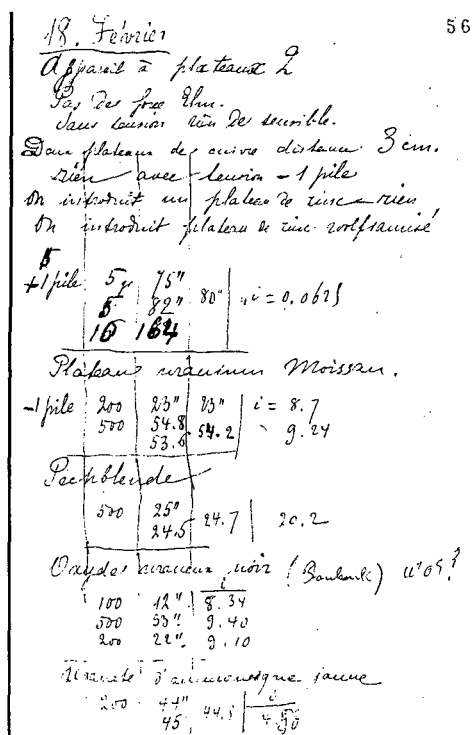 56
18. Février
Appareil à plateaux 2
Pas de force Elm.
Sans tension rien de sensible.
Deux plateaux de cuivre distance 3 cm.
rien avec tension - 1 pile
On introduit un plateau de zinc - rien
On introduit plateau de zinc wolframisé
5
+1 pile 5 gr 75" 80" i = 0.0625
5 82"
10 164
Plateaux uranium Moissan.
-1 pile 200 23" 23" i = 8.7
500 54.8 54.2 9.24
53.6
Pechblende
500 25" 24.7 20.2
24.5
Oxydes uraneux noir ( )
i
100 12" 8.34
500 53" 9.40
200 22" 9.10
Uranate d'ammoniaque jaune
i
200 44" 44.5 4.50
45